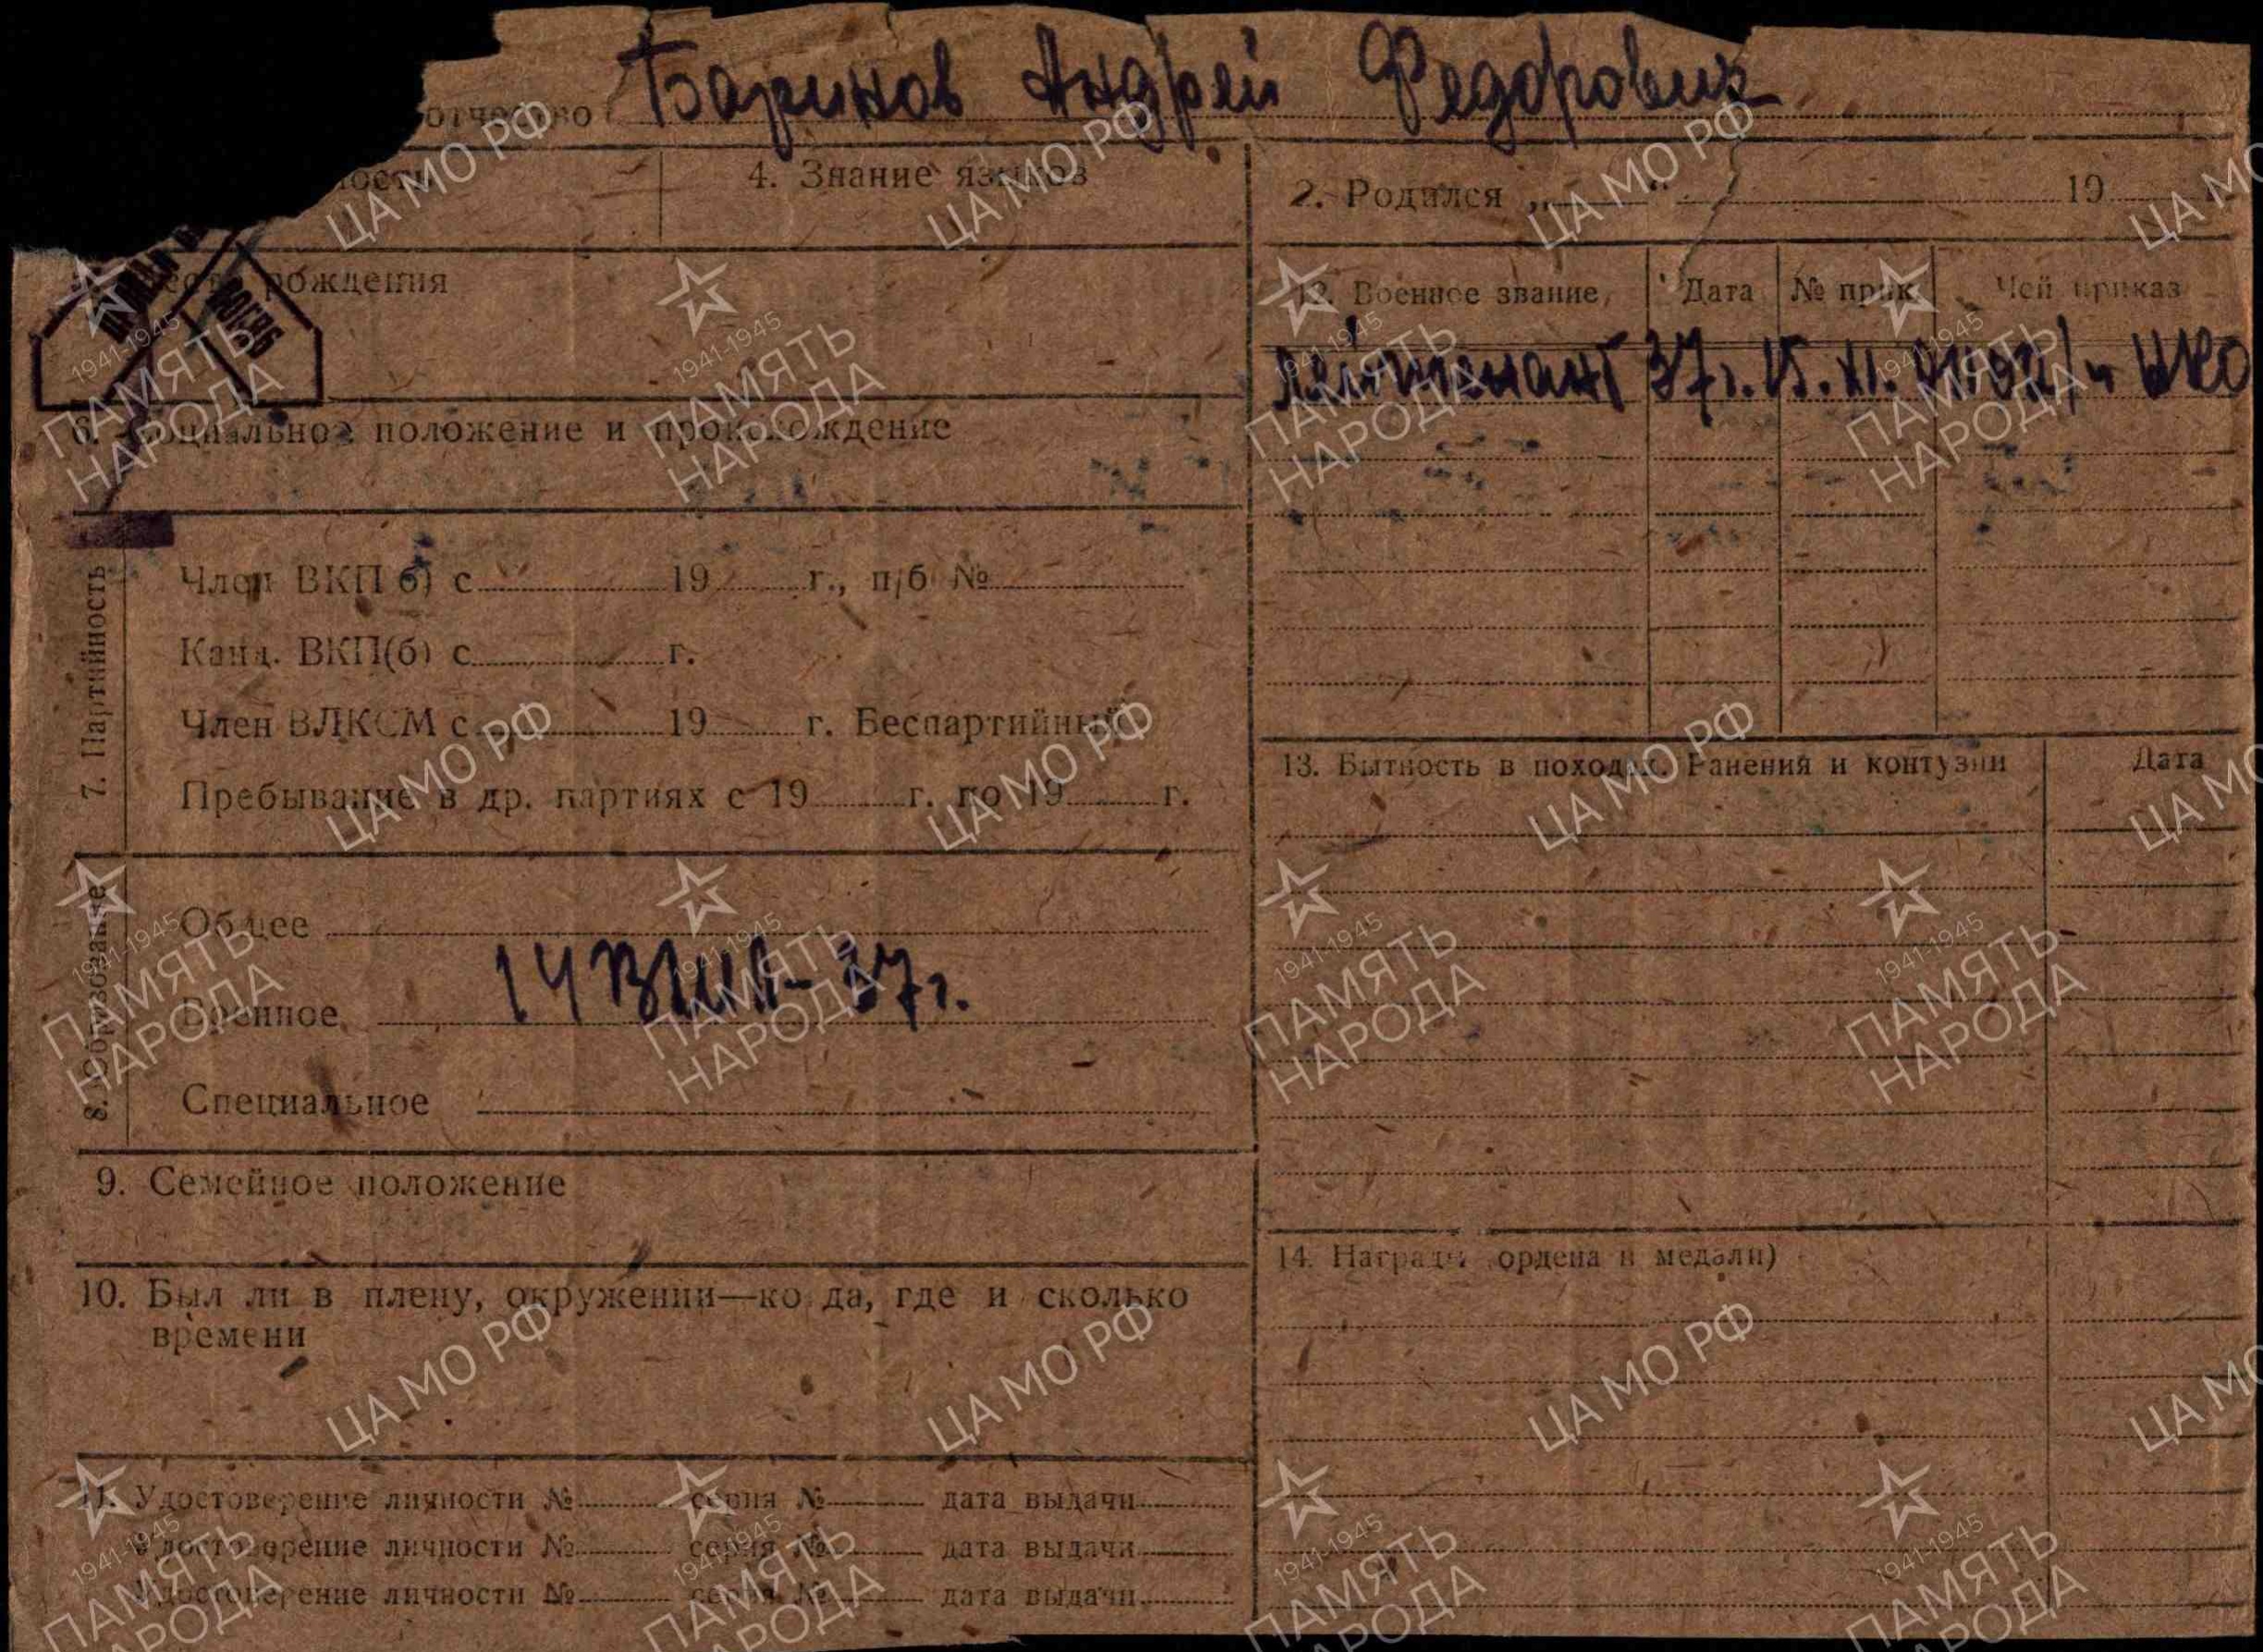 отчество Баринов Андрей Федорович
ности
4. Знание языков
2. Родился „ “ 19 г.
Место рождения
6. Социальное положение и происхождение
7. Партийность
Член ВКП б) с 19 г., п/б №
Канд. ВКП(б) с г.
Член ВЛКСМ с 19 г. Беспартийный
Пребывание в др. партиях с 19 г. по 19 г.
8. Образование
Общее
Военное
37г.
Специальное
9. Семейное положение
10. Был ли в плену, окружении—когда, где и сколько
времени
11. Удостоверение личности № серия № дата выдачи
Удостоверение личности № серия № дата выдачи
Удостоверение личности № серия № дата выдачи
12. Военное звание Дата № прик. Чей приказ
лейтенант 37г. 15.XI. НКО
13. Бытность в походах. Ранения и контузии Дата
14. Награды ордена и медали)
ЦА МО РФ
1941-1945
ПАМЯТЬ
НАРОДА